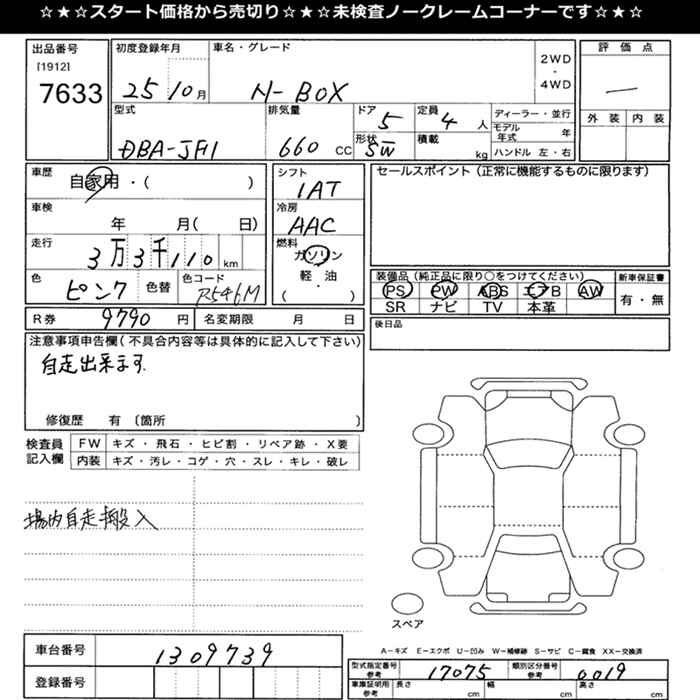 ☆★☆スタート価格から売切り☆★☆未検査ノークレームコーナーです☆★☆
出品番号 初度登録年月 車名・グレード 2WD・4WD 評価点
[1912]
7633 25 10月 N-BOX —
型式 排気量 ドア 5 定員 4人 ディーラー・並行 外装 内装
DBA-JF1 660 CC 形状 SW 積載 kg モデル年式 年
ハンドル 左・右
車歴 自家用・( ) シフト セールスポイント(正常に機能するものに限ります)
1AT
車検 年 月( 日) 冷房
AAC
走行 3万3千110km 燃料
ガソリン
軽・油
( )
色 ピンク 色替 色コード R546M
装備品(純正品に限り○をつけてください) 新車保証書
PS PW ABS エアB AW 有・無
SR ナビ TV 本革
R券 9790円 名変期限 月 日 後日品
注意事項申告欄(不具合内容等は具体的に記入して下さい)
自走出来ます.
修復歴 有 〔箇所 〕
検査員記入欄 FW キズ・飛石・ヒビ割・リペア跡・X要
内装 キズ・汚レ・コゲ・穴・スレ・キレ・破レ
場内自走搬入
スペア
A-キズ E-エクボ U-凹み W-補修跡 S-サビ C-腐食 XX-交換済
車台番号 1309739
型式指定番号 参考 17075 類別区分番号 参考 0019
登録番号 車庫証明用 参考 長さ cm 幅 cm 高さ cm